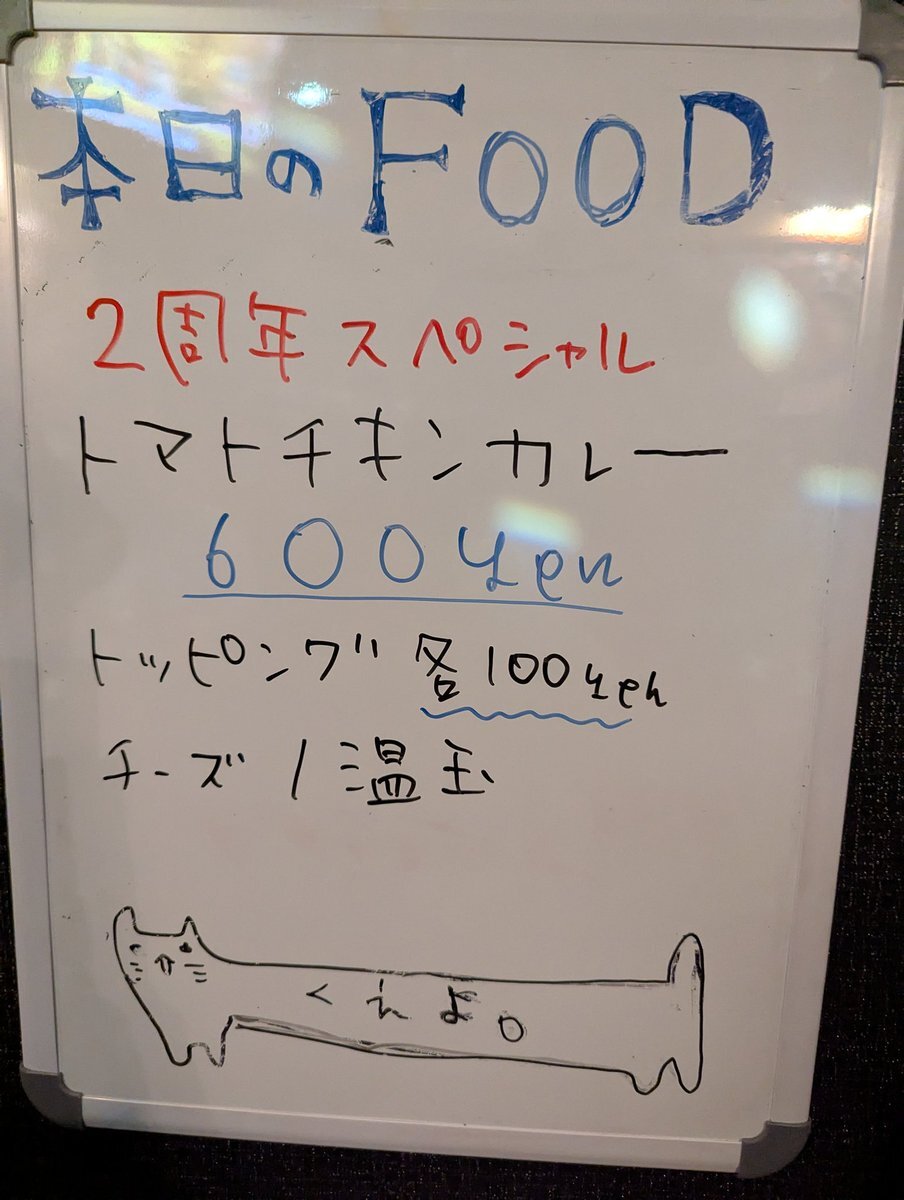 本日のFOOD
2周年スペシャル
トマトチキンカレー
600yen
トッピング 各100yen
チーズ / 温玉
くえよ。